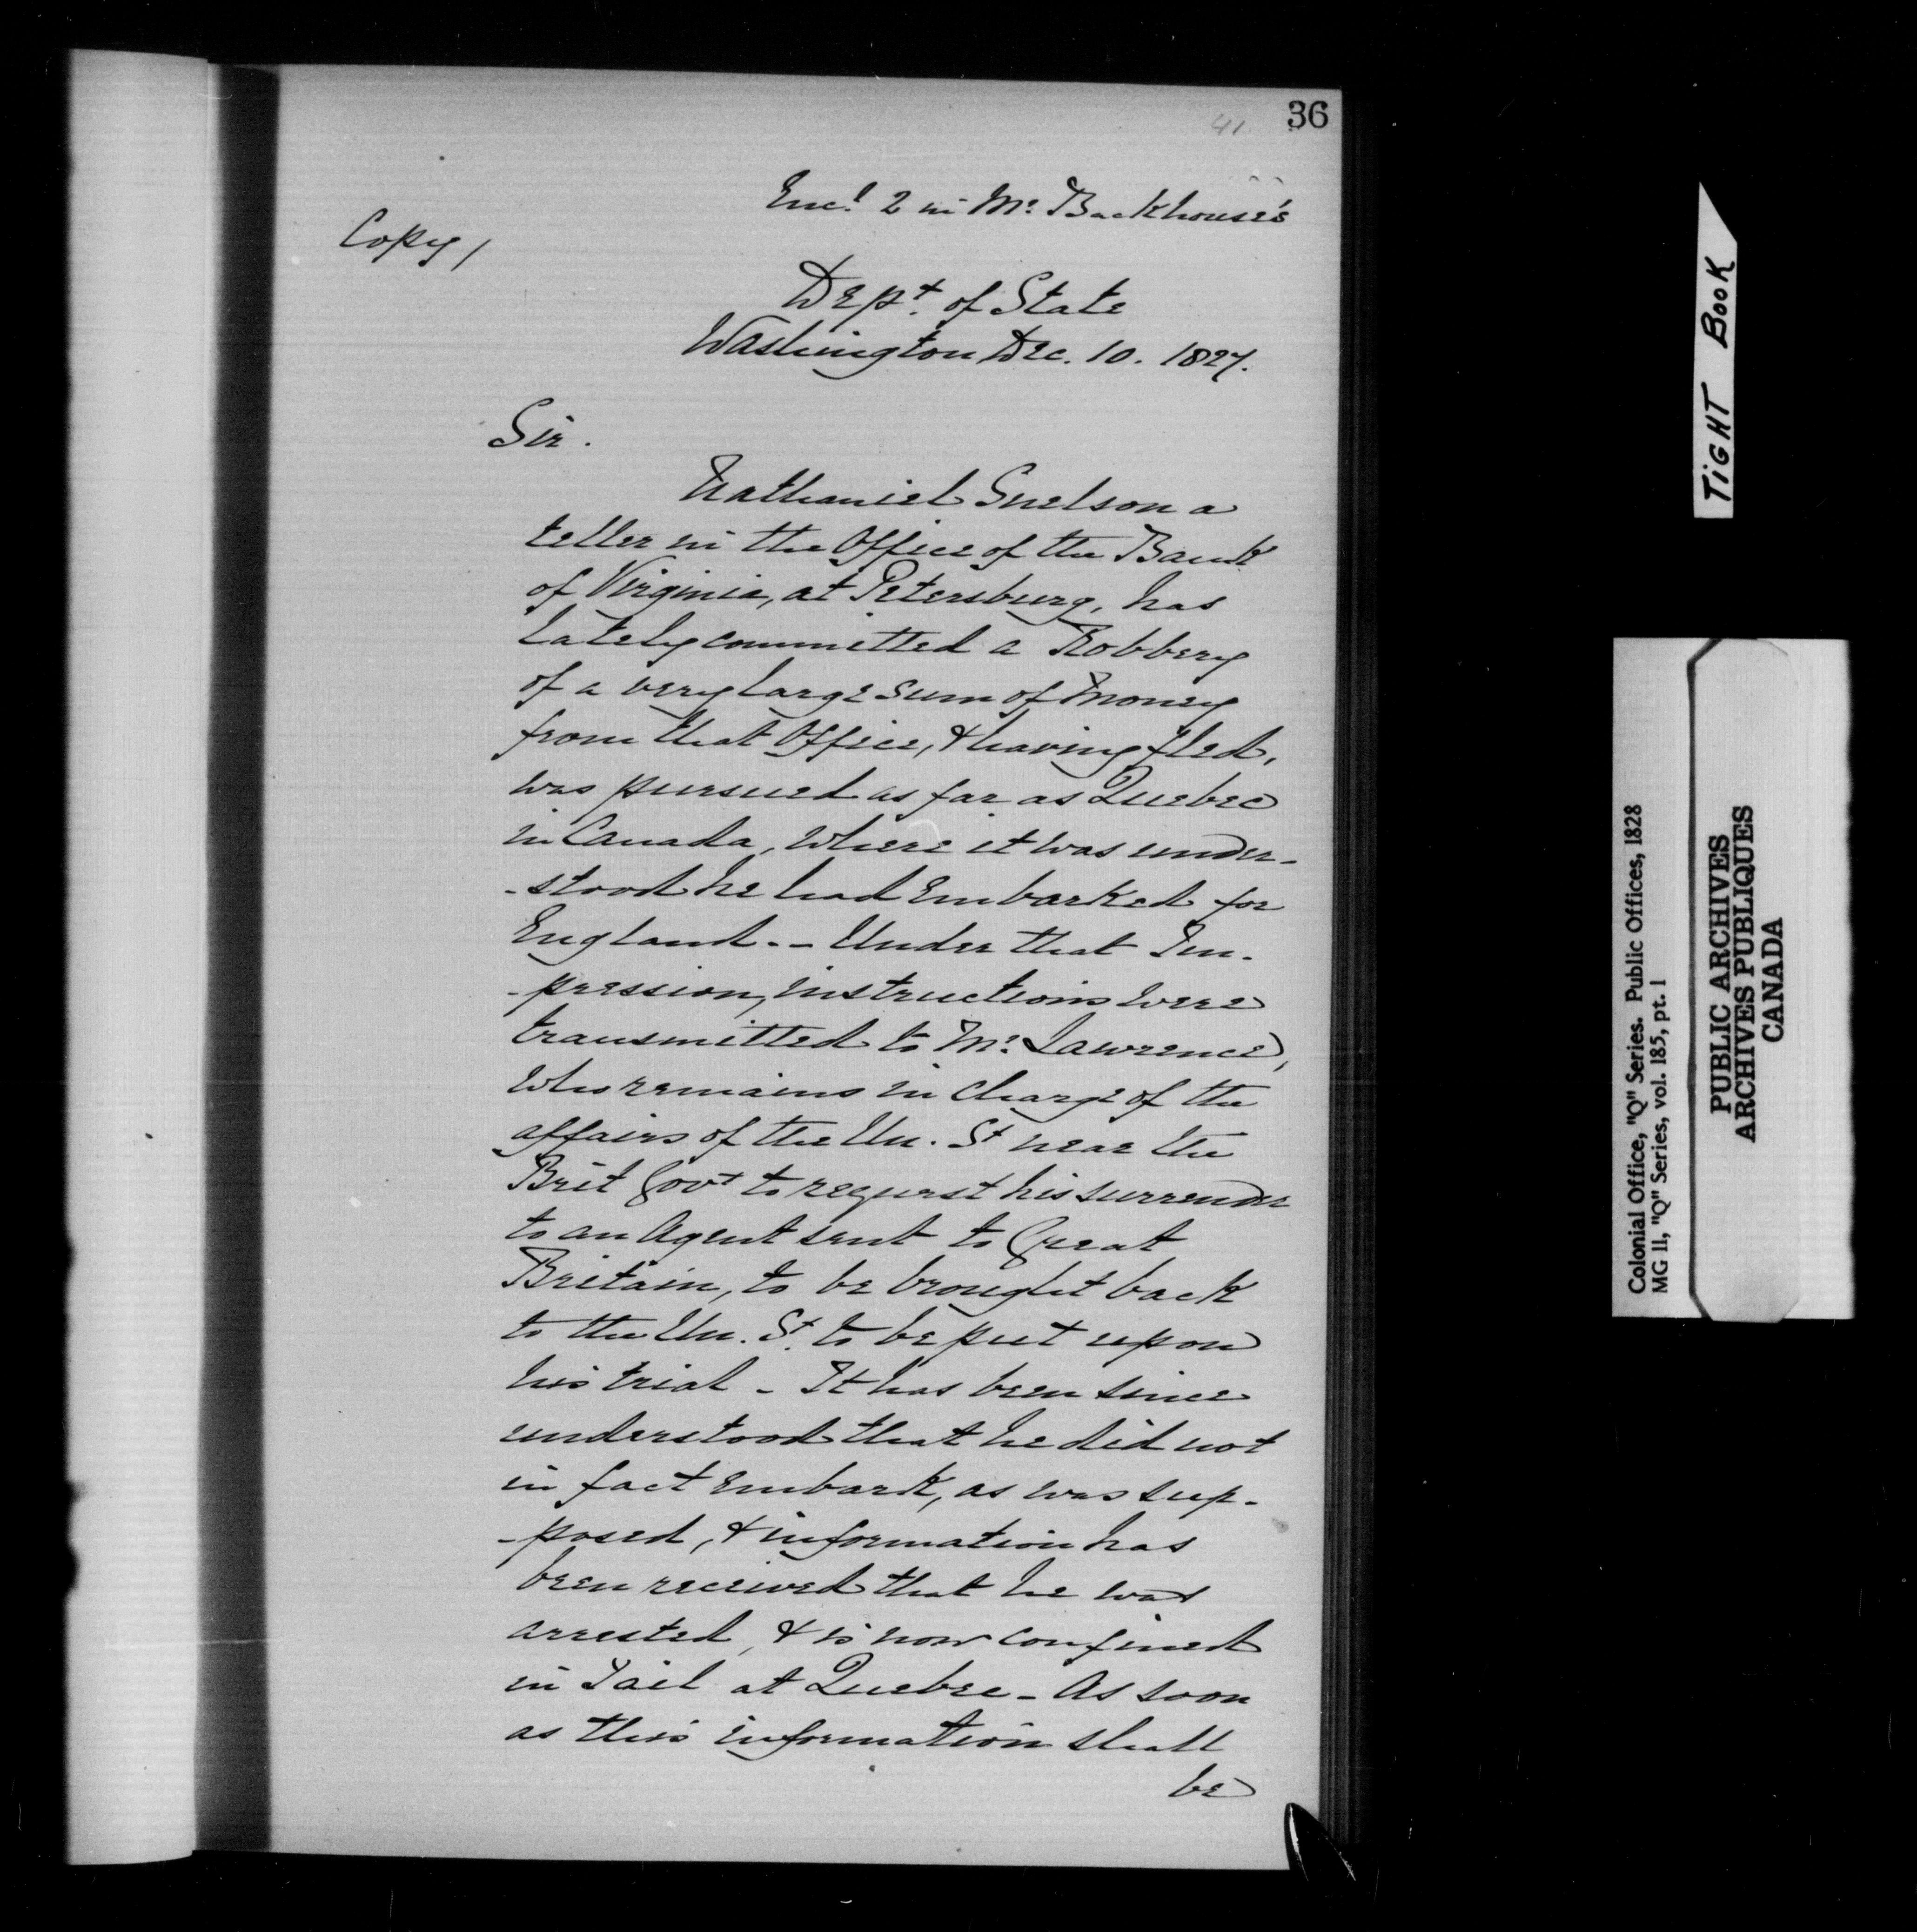 36
41.
Encl 2 in Mr Backhouse's
Copy/
Dept. of State
Washington Dec. 10. 1827.
Sir.
Nathaniel Snelson a
teller in the Office of the Bank
of Virginia, at Petersburg, has
lately committed a Robbery
of a very large sum of money
from that Office, & having fled,
was pursued as far as Quebec
in Canada, where it was under-
-stood he had embarked for
England. - Under that Im-
-pression, instructions were
transmitted to Mr. Lawrence,
who remains in charge of the
affairs of the Un. St near the
Brit Govt to request his surrender
to an Agent sent to Great
Britain, to be brought back
to the Un. St. to be put upon
his trial - It has been since
understood that he did not
in fact embark, as was sup-
-posed, & information has
been received that he was
arrested, & is now confined
in Jail at Quebec - As soon
as this information shall
be
TIGHT BOOK
Colonial Office, "Q" Series. Public Offices, 1828
MG 11, "Q" Series, vol. 185, pt. 1
PUBLIC ARCHIVES
ARCHIVES PUBLIQUES
CANADA